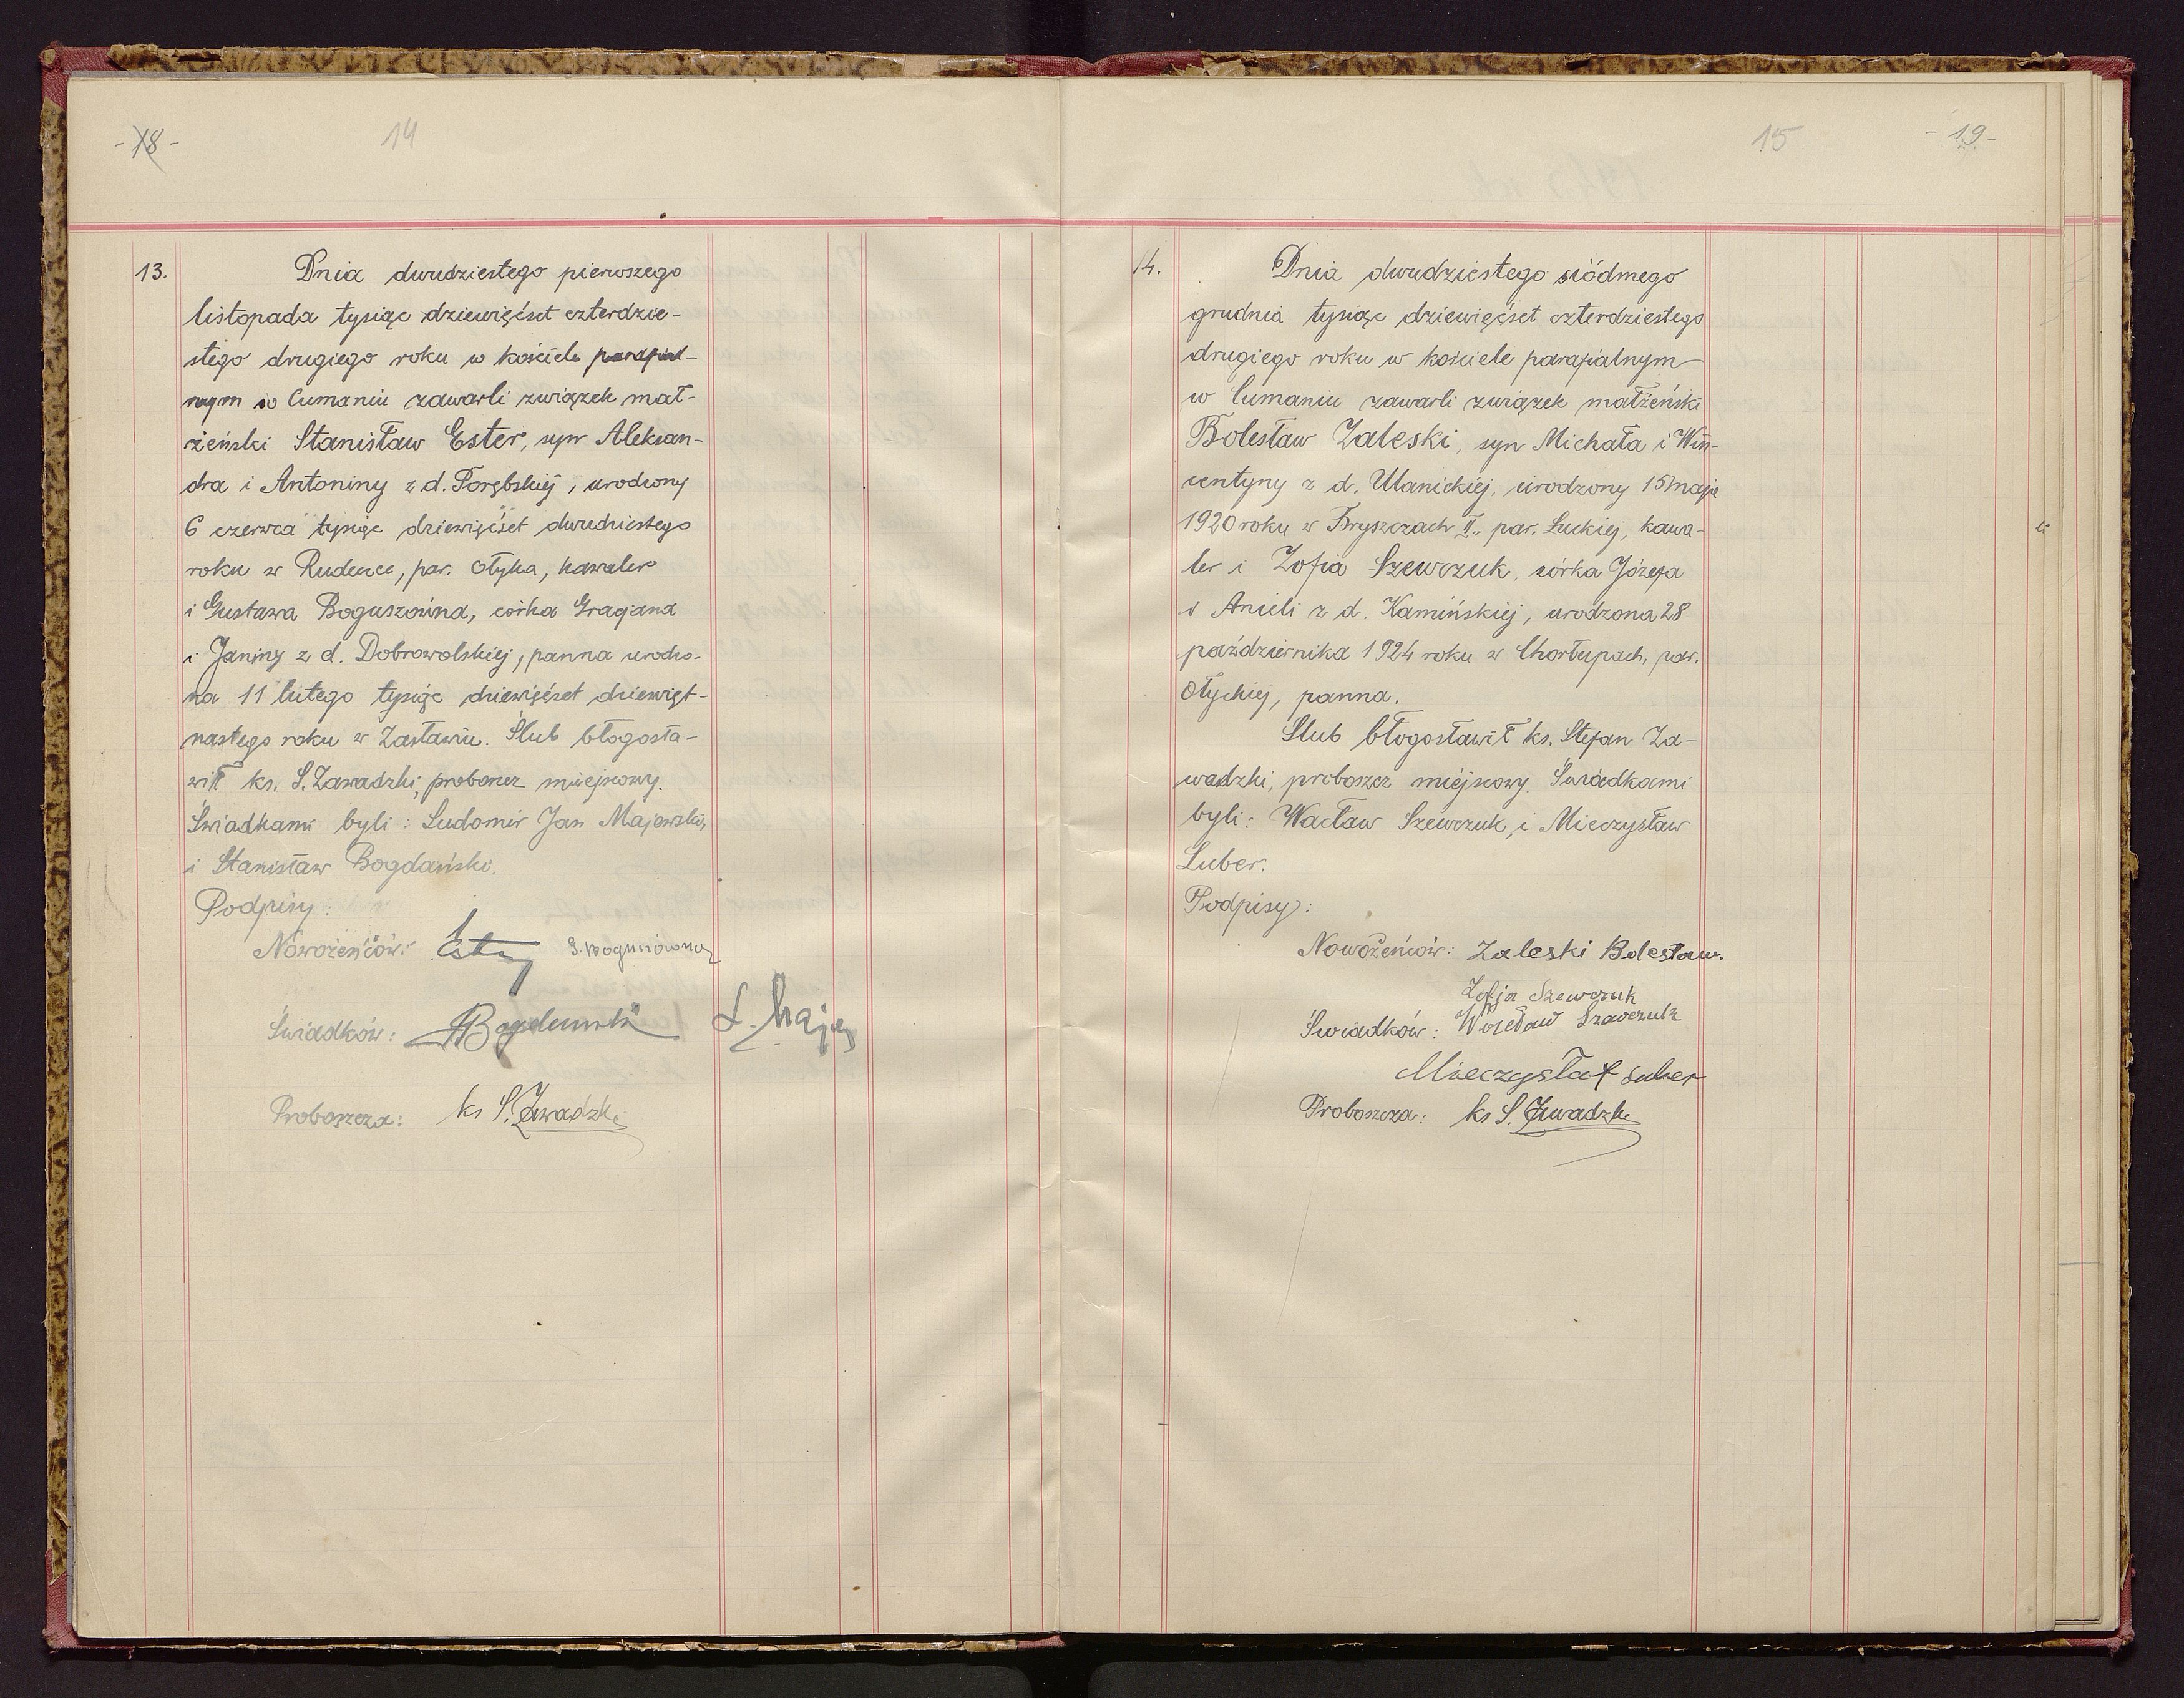 -18-
14
13.
Dnia dwudziestego pierwszego
listopada tysiąc dziewięćset czterdzie-
stego drugiego roku w kościele parafial-
nym w Cumaniu zawarli związek mał-
żeński Stanisław Ester, syn Aleksan-
dra i Antoniny z d. Porębskiej, urodzony
6 czerwca tysiąc dziewięćset dwudziestego
roku w Rudence, par. Ołyka, kawaler
i Gustawa Boguszówna, córka Gracjana
i Janiny z d. Dobrowolskiej, panna urodzo-
na 11 lutego tysiąc dziewięćset dziewięt-
nastego roku w Zasławiu. Ślub błogosła-
wił ks. S. Zawadzki, proboszcz miejscowy.
Świadkami byli: Ludomir Jan Majewski,
i Stanisław Bogdański.
Podpisy:
Nowożeńców: G. Boguszówna
Świadków:
Proboszcza: ks S. Zawadzki
15
-19-
14.
Dnia dwudziestego siódmego
grudnia tysiąc dziewięćset czterdziestego
drugiego roku w kościele parafialnym
w Cumaniu zawarli związek małżeński
Bolesław Zaleski, syn Michała i Win-
centyny z d. Ulanickiej, urodzony 15 maja
1920 roku w Bryszczach II., par. Łuckiej, kawa-
ler i Zofia Szewczuk, córka Józefa
i Anieli z d. Kamińskiej, urodzona 28
października 1924 roku w Chorłupach, par.
Ołyckiej, panna.
Ślub błogosławił ks. Stefan Za-
wadzki, proboszcz miejscowy. Świadkami
byli: Wacław Szewczuk, i Mieczysław
Luber.
Podpisy:
Nowożeńców: Zaleski Bolesław.
Zofja Szewczuk
Świadków: Wacław Szewczuk
Mieczysław Luber
Proboszcza: ks S. Zawadzki